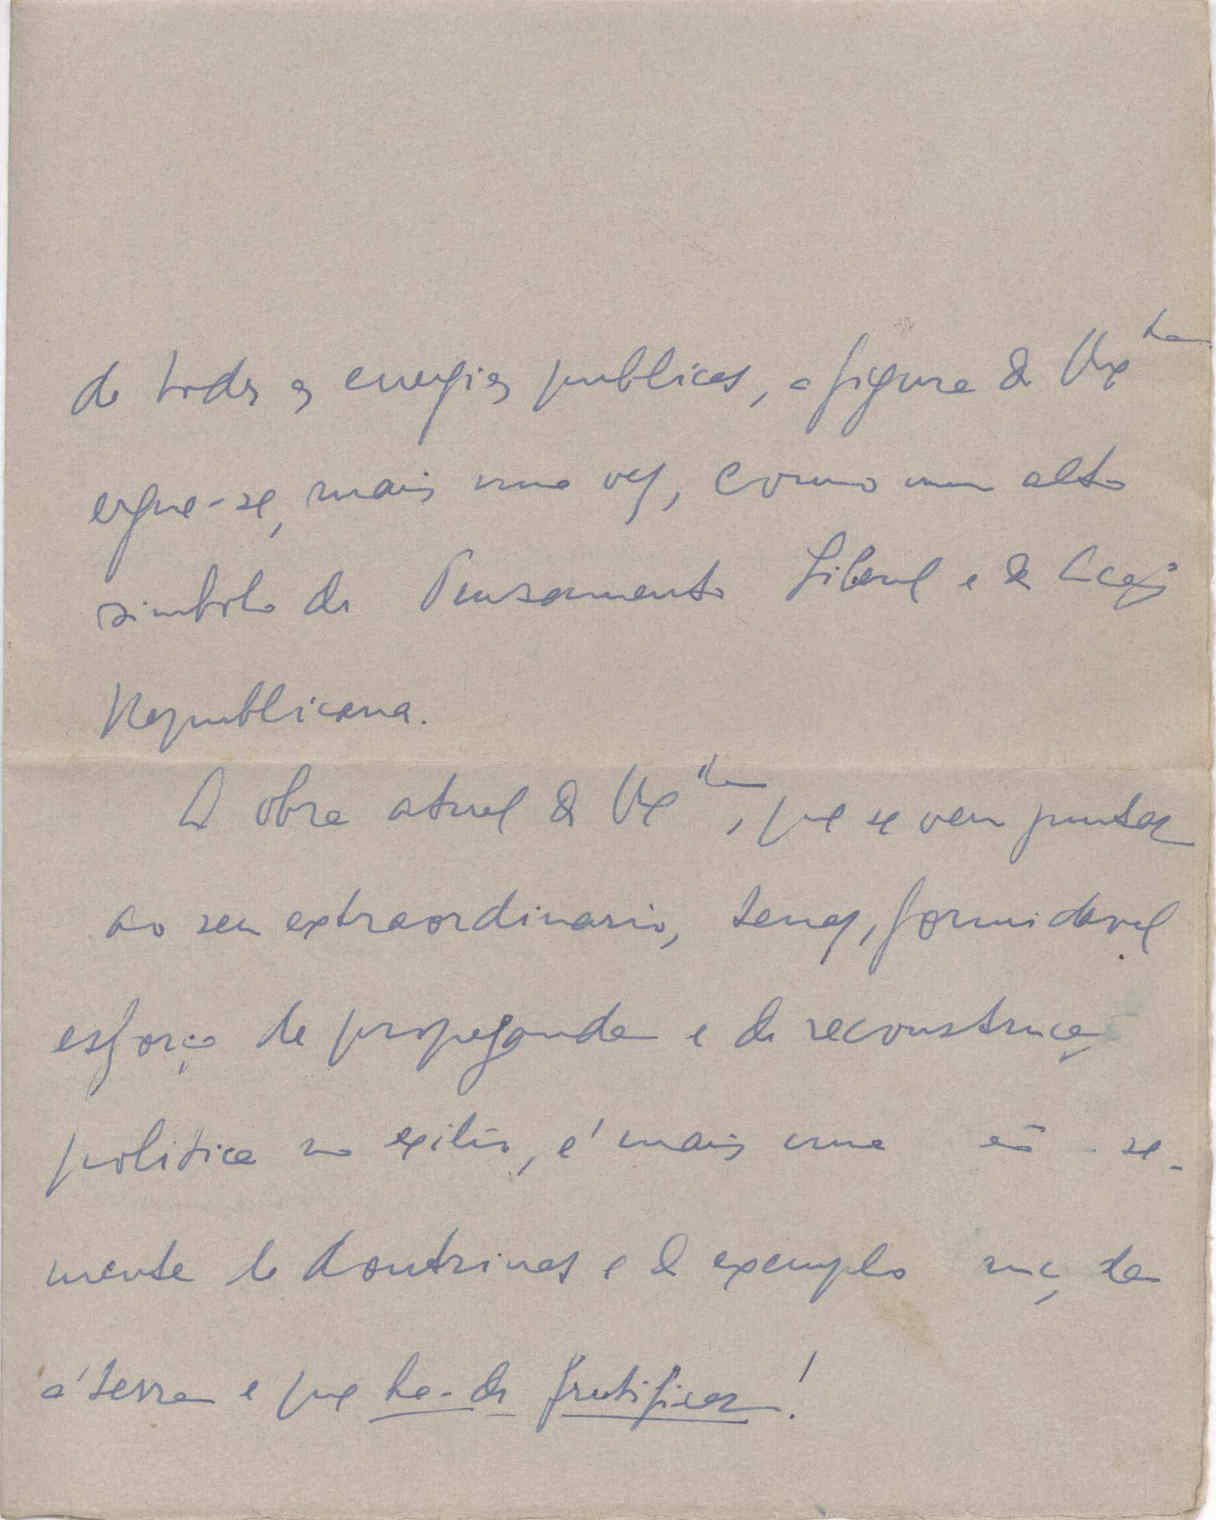 de todas as energias publicas, a figura de V. Ex.cia
ergue-se, mais uma vez, como um alto
simbolo do Pensamento Liberal e da Acção
Republicana.
A obra atual de V. Ex.cia, que se vem juntar
ao seu extraordinario, tenaz, formidavel
esforço de propaganda e de reconstrução
politica no exilio, é mais uma se-
mente de doutrinas e de exemplo
á terra e que ha-de frutificar!